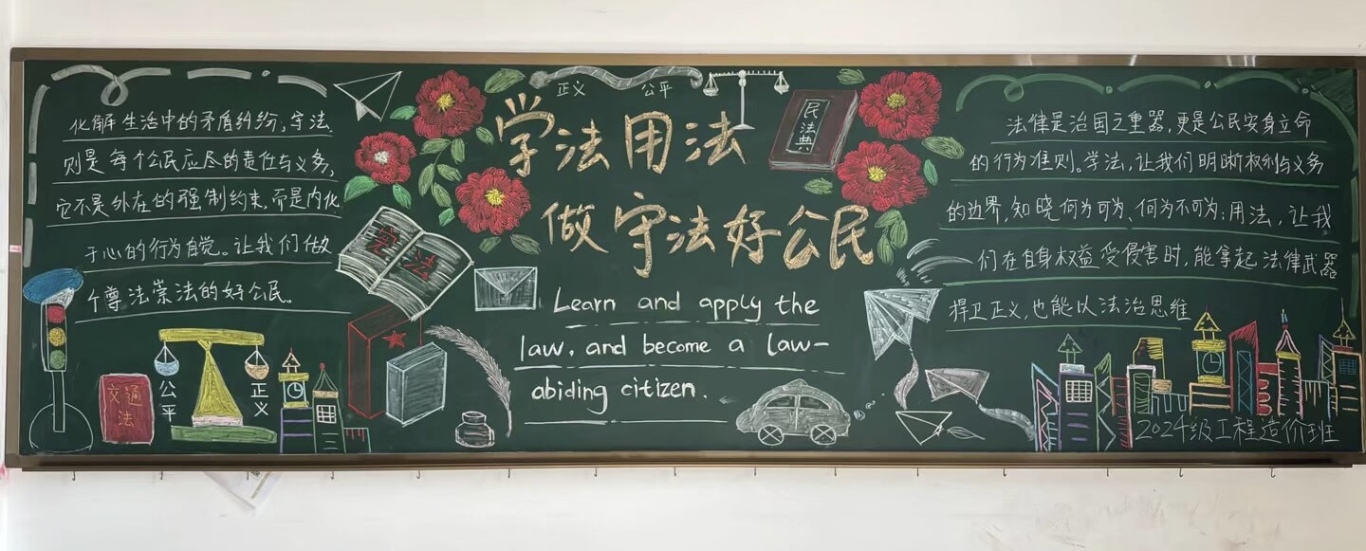 化解生活中的矛盾纠纷,守法
则是每个公民应尽的责任与义务,
它不是外在的强制约束,而是内化
于心的行为自觉。让我们做
个尊法崇法的好公民。
交通法
公平
正义
正义 公平
学法用法
做守法好公民
民法典
宪法
Learn and apply the
law, and become a law-
abiding citizen.
法律是治国之重器,更是公民安身立命
的行为准则。学法,让我们明晰权利与义务
的边界,知晓何为可为、何为不可为;用法,让我
们在自身权益受侵害时,能拿起法律武器
捍卫正义,也能以法治思维
2024级工程造价班